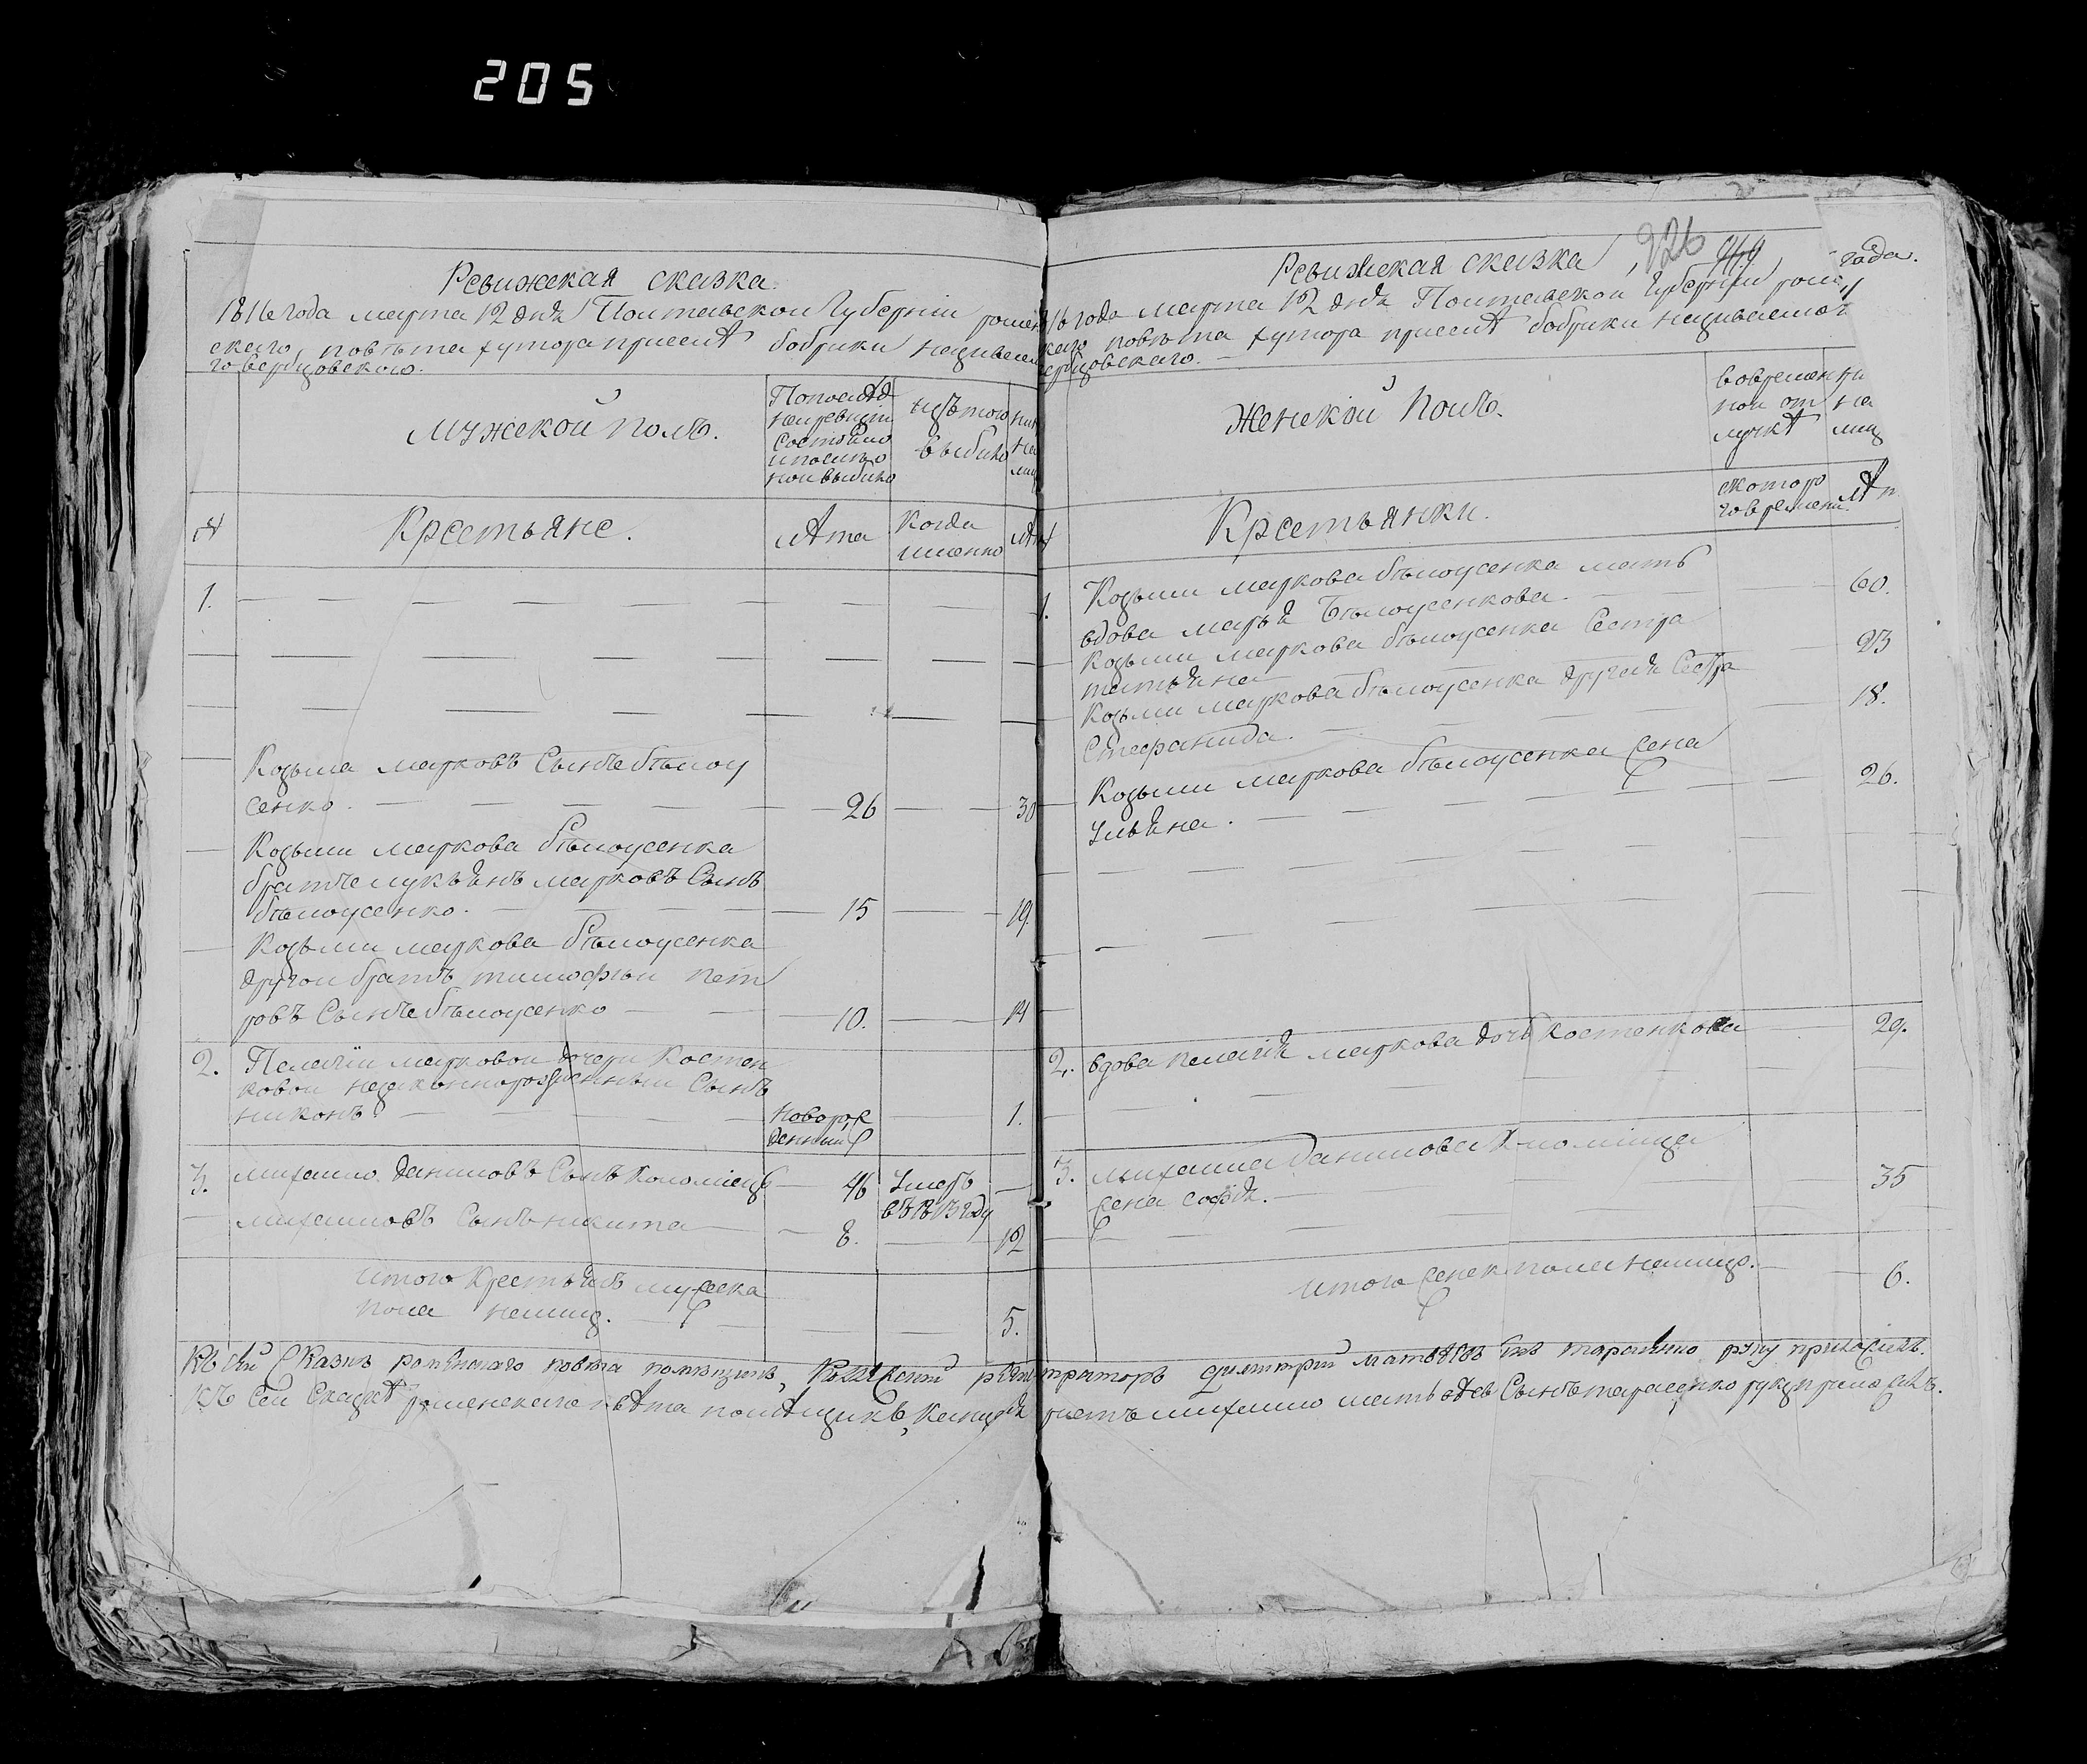 205
Ревижская сказка.
1816 года марта 12 дня Полтавской Губернии ромен
скаго повѣта хутора приселѣ бобрики называем
го вербцовского.
мужской полъ.
Попослѣд
ней ревизи
состояло
и после
ной выбыло
изътого
выбыло
№
Крестьяне.
лѣта
Когда
именно
1.
Козьма марковъ Сынъ бѣлоу
сенко. 26 30
Козьми маркова бѣлоусенка
братъ лукьянъ марковъ Сынъ
бѣлоусенко. 15 19.
Козьми маркова бѣлоусенка
другои братъ тимофѣи пет
ровъ Сынъ бѣлоусенко 10. 14
2. Пелагiи марковои дочери Костен
ковои незаконнорозжденныи Сынъ
никонъ новорож
денныи 1.
3. михаило даниловъ Сынъ Коломiецъ 46 Умеръ
въ 1813 году
михаиловъ Сынъ никита 8. 12
итого Крестьянъ мужеска
пола налицо. 5.
Ревижская сказка 226 449 года.
16 года марта 12 дня Полтавской Губернии роме
каго повѣта хутора приселѣ бобрики называемог
ербцовскаго.
Женской Полъ.
вовременн
нои от
лучкѣ
на
лиц
Крестьянки.
скотор
говремени.
лѣт
1. Козьми маркова бѣлоусенка мать
вдова марья Бѣлоусенкова. 60.
Козьми маркова бѣлоусенка Сестра
татьяна 23
Козьми маркова бѣлоусенка другая Сестра
Стефанида. 18.
Козьми маркова бѣлоусенка жена
Ульяна. 26.
2. вдова пелагiя маркова дочь костенкова 29.
3. михаила данилова Коломiица
жена софiя. 35
итого женск пола налицо. 6.
Къ сей сказкѣ роменскаго повѣта помѣщикъ, Колежский регистраторъ димитрий матвѣевъ сынъ тарасенко руку приложилъ.
Къ Сеи Сказкѣ роменскаго повѣта помѣщикъ, канцеляристъ михаило матвѣевъ Сынъ тарасенко руку приложилъ.